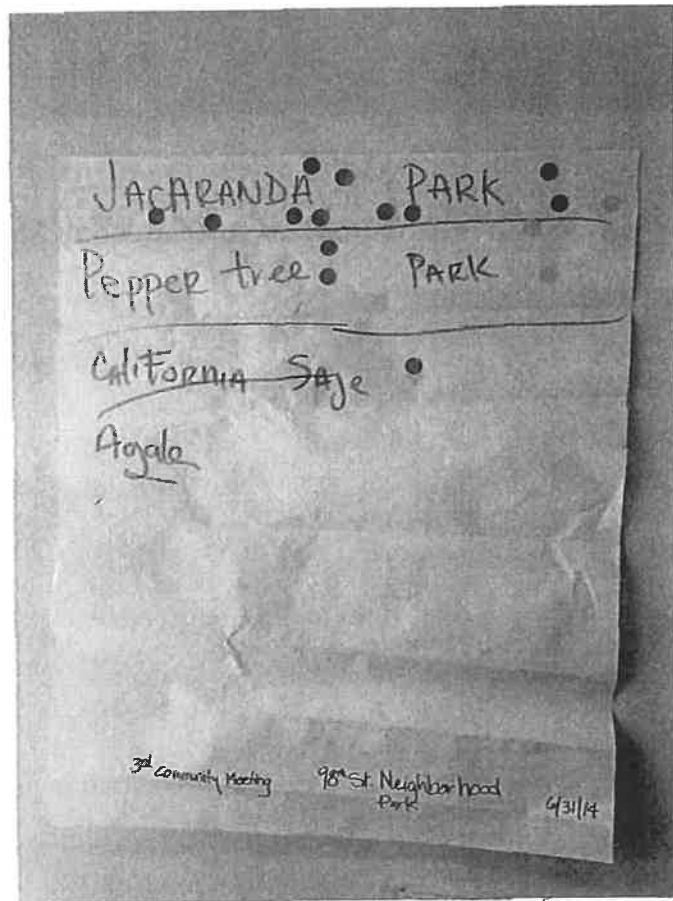 JACARANDA PARK
Pepper tree PARK
CALIFORNIA SAge
Agale
3rd Community Meeting 98th St. Neighborhood Park 6/31/14